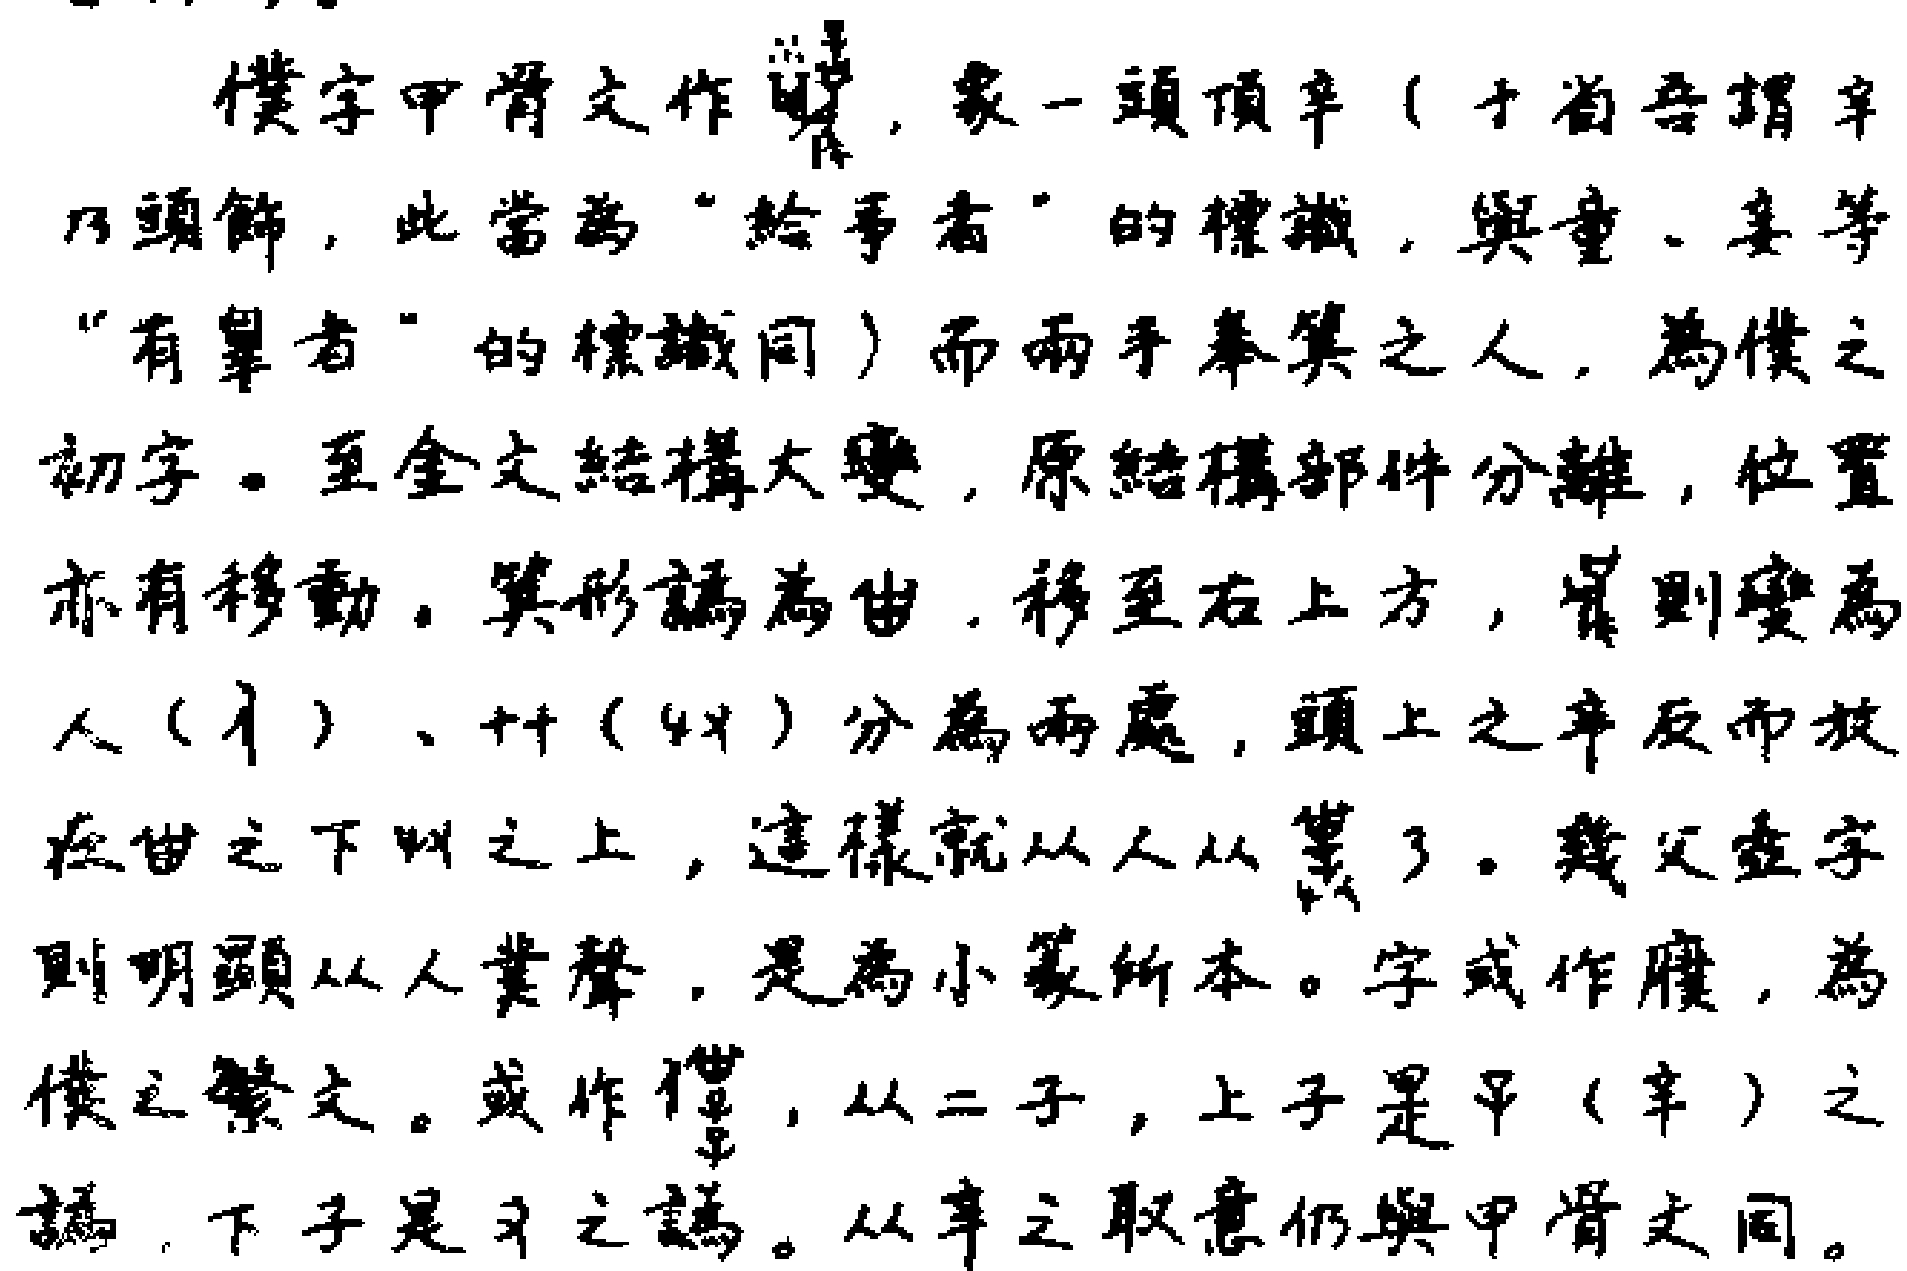 僕字甲骨文作，象一頭頂辛（于省吾謂辛
乃頭飾，此當為“給事者”的標識，與童、妾等
“有辠者”的標識同）而兩手奉箕之人，為僕之
初字。至金文結構大變，原結構部件分離，位置
亦有移動。箕形譌為甾，移至右上方，則變為
人（亻）、廾（𠬞）分為兩處，頭上之辛反而放
在甾之下𠬞之上，這樣就从人从了。幾父壺字
則明顯从人菐聲，是為小篆所本。字或作𦢰，為
僕之繁文。或作，从二子，上子是䇂（辛）之
譌，下子是又之譌。从辛之取意仍與甲骨文同。